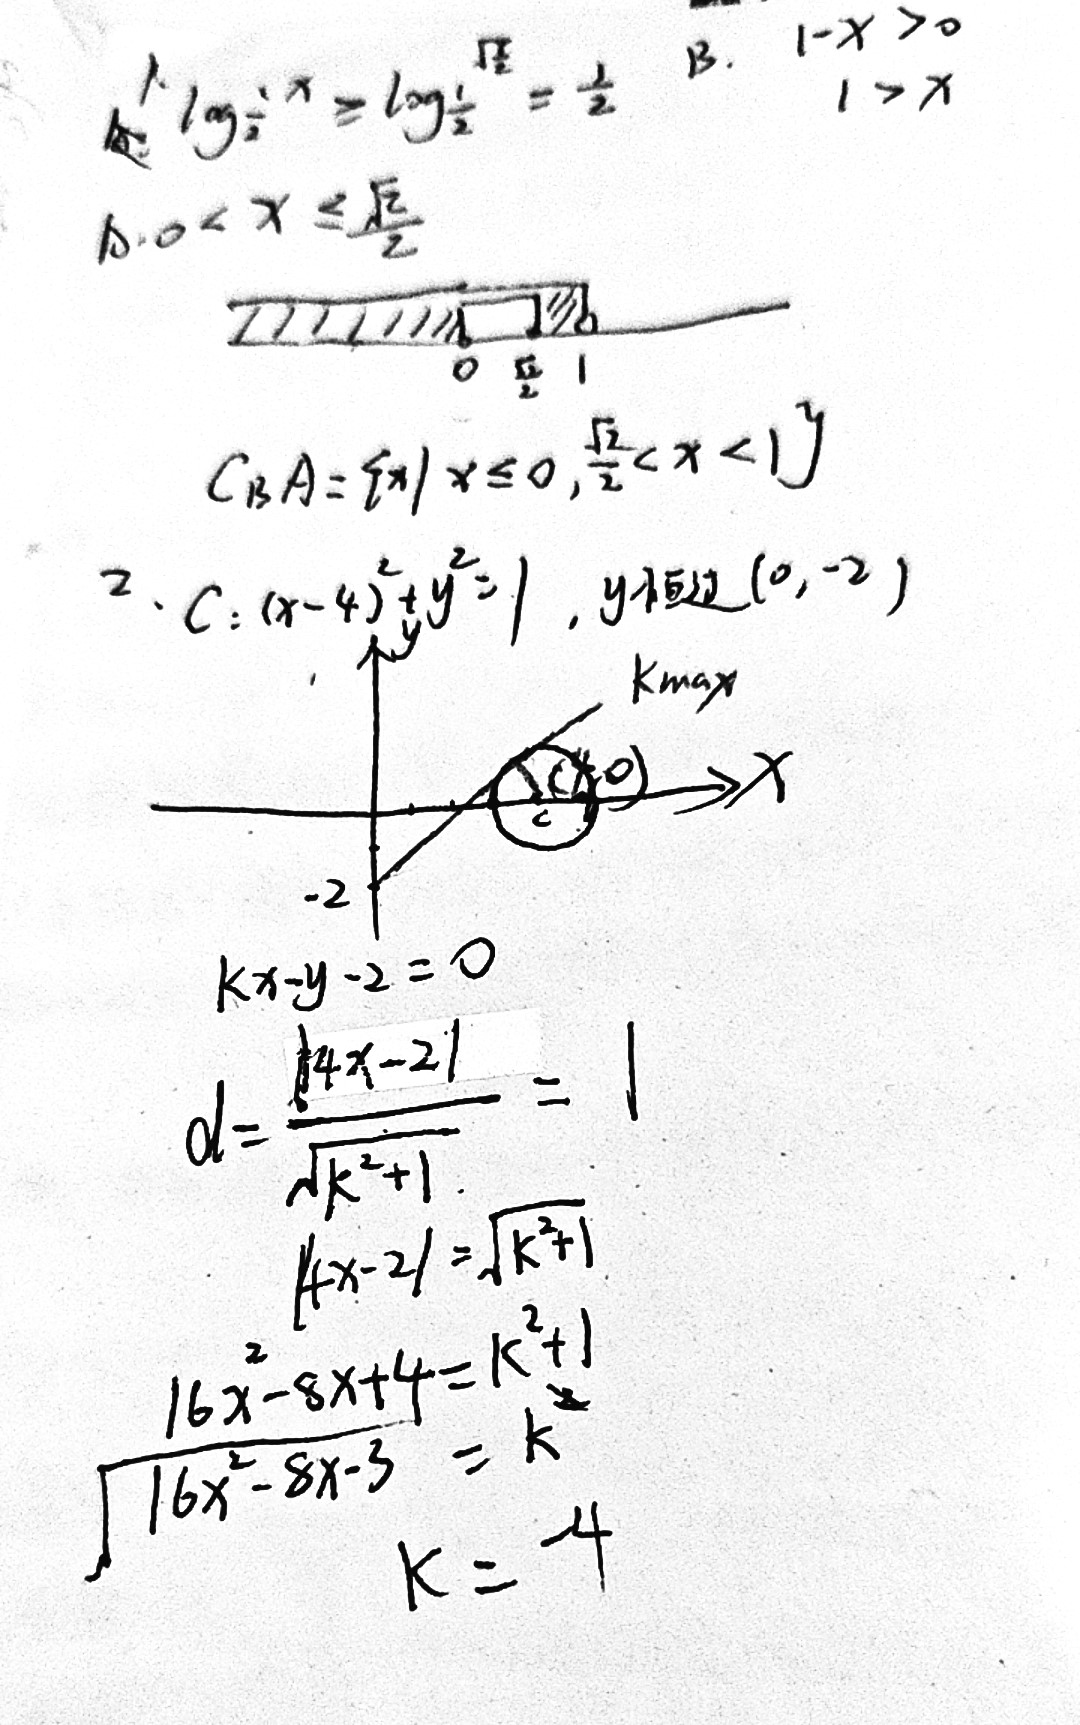 1. log_{1/2} x ≥ log_{1/2} √2/2 = 1/2
B. 1-x>0
1>x
A. 0<x≤√2/2
0 √2/2 1
C_B A={x|x≤0, √2/2<x<1}
2. C: (x-4)²+y²=1, y恒过(0,-2)
y
Kmax
(4,0)
x
c
-2
kx-y-2=0
d=|4x-2|/√(k²+1) = 1
|4x-2|=√(k²+1)
16x²-8x+4=k²+1
√(16x²-8x-3) = k
K=4